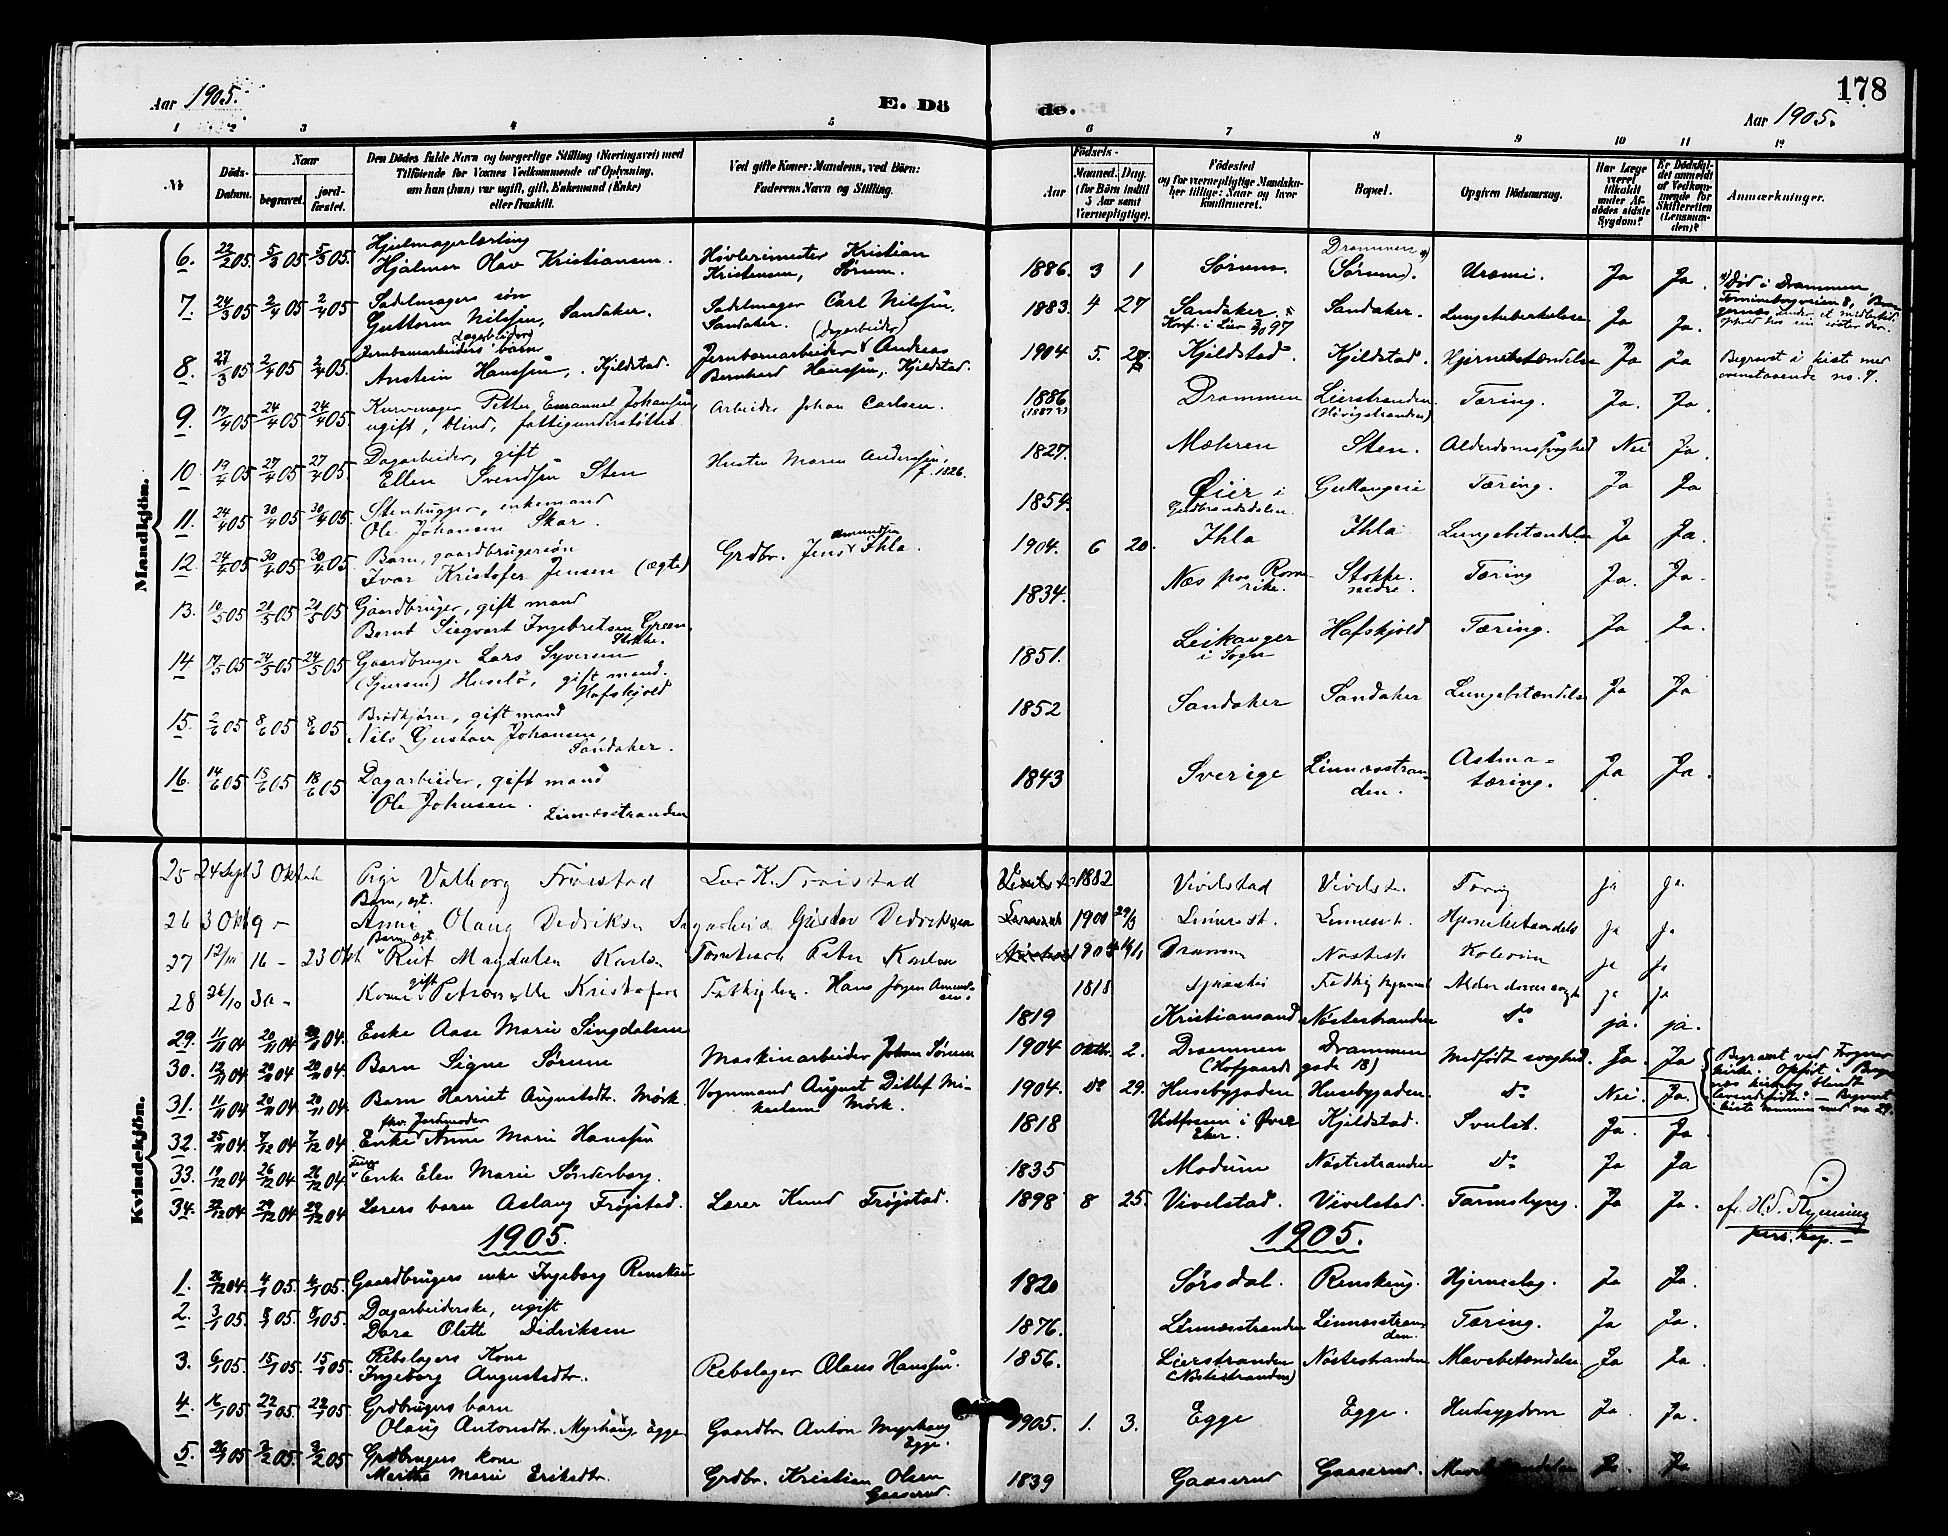 178
Aar 1905.
E. Dö
de.
Aar 1905.
1 2 3 4 5 6 7 8 9 10 11 12
№
Döds-Datum.
Naar
begravet.
jord-fæstet.
Den Dödes fulde Navn og borgerlige Stilling (Næringsvei) med
Tilföiende for Voxnes Vedkommende af Oplysning,
om han (hun) var ugift, gift, Enkemand (Enke)
eller fraskilt.
Ved gifte Koner: Mandens, ved Börn:
Faderens Navn og Stilling.
Födsels-
Aar
Maaned. Dag.
(for Börn indtil
5 Aar samt
Værnepligtige).
Födested
og for værnepligtige Mandska-
ber tillige: Naar og hvor
konfirmeret.
Bopæl.
Opgiven Dödsaarsag.
Har Læge
været
tilkaldt
under Af-
dödes sidste
Sygdom?
Er Dödsfal-
det anmeldt
af Vedkom-
mende for
Skifteretten
(Lensman-
den)?
Anmærkninger.
Mandkjön.
6. 22/2 05 5/3 05 5/3 05. Hjulmagerlærling
Hjalmar Olav Kristiansen. Høvlerimester Kristian
Kristensen, Sørum. 1886. 3 1 Sørum. Drammen
(Sørum). Uræmi. Ja Ja. Død i Drammen
7. 24/3 05 2/4 05 2/4 05. Sadelmagers søn
Guttorm Nilssen, Sandaker. Sadelmager Carl Nilssen,
Sandaker. 1883. 4 27 Sandaker.
Konf. i Lier 97 Sandaker. Lungetuberkelose Ja Ja.
8. 27/3 05 2/4 05 2/4 05. (dagarbeiders)
Jernbanearbeiders barn
Anstein Hanssen, Kjeldstad. (dagarbeider)
Jernbanearbeider Andreas
Bernhard Hanssen, Kjeldstad. 1904 5. Kjeldstad. Kjeldstad. Hjernebetændelse Ja Ja Begravet i kiste med
ovenstaaende no. 7.
9. 17/4 05 24/4 05 24/4 05 Kurvmager Petter Emanuel Johansen,
ugift, blind, fattigunderstøttet Arbeider Johan Carlsen. 1886
(1887?) Drammen Lierstranden
(Høvigstranden) Tæring. Ja. Ja.
10. 19/4 05 27/4 05 27/4 05. Dagarbeider, gift
Ellen Svendsen Sten Hustru Maren Andersen,
f. 1826. 1827. Mæhren Sten. Alderdomssvaghed Nei Ja.
11. 24/4 05 30/4 05 30/4 05. Stenhugger, enkemand
Ole Johansen Skar. 1854. Øier i
Gudbrandsdalen. Gullaugeie Tæring. Ja Ja
12. 24/4 05 30/4 05 30/4 05. Barn, gaardbrugersøn
Ivar Kristofer Jensen (ægte) Grdbr. Jens Amundsen Ihla. 1904. 6 20. Ihla Ihla Lungebetændelse Ja Ja.
13. 10/5 05 21/5 05 21/5 05 Gaardbruger, gift mand
Bernt Siegvart Ingebretsen Green,
Stokke. 1834. Næs paa Rome
rike. Stokke.
nedre. Tæring Ja. Ja.
14 17/5 05 24/5 05 24/5 05 Gaardbruger Lars Syversen
(Sjursen) Huselø, gift mand.
Hafskjold 1851. Leikanger
i Sogn Hafskjold Tæring. Ja Ja.
15. 2/6 05 8/6 05 8/6 05. Brødkjører, gift mand
Nils Gustav Johansen
Sandaker. 1852 Sandaker Sandaker Lungebetændelse Ja Ja
16. 14/6 05 18/6 05 18/6 05 Dagarbeider, gift mand
Ole Johnsen.
Linnesstranden 1843 Sverige Linnesstran-
den. Astma-
tæring. Ja Ja.
Kvindekjön.
25 24 Sept 3 Oktob Pige Valborg Frøistad Lær K. Frøistad 1882 Vivelstad Vivelst. Tæring ja ja.
26 3 Okt 9 - Barn, ægt.
Anne Olaug Dedriksen Dagarbeid Gustav Dedriksen 1900 29/3 Linnest. Linnest. Hjernebetændels ja ja
27 12/10 16 - 23 Okt Barn ægt
Rut Magdalen Karlsen Peter Karlsen 1904 Drammen Nøstest. Kolerin ja ja
28 26/10 30 - Kone gift Petronelle Kristofers Fattiglem Hans Jørgen 1818 Alderdomssvagh ja ja
29. 11/11 04 20/11 04 20/11 04. Enke Aase Marie Singdalsen 1819 Kristiansand Nøstestranden do ja. ja.
30. 12/11 04 20/11 04 20/11 04. Barn Signe Sørum Maskinarbeider Johan Sørum 1904 Oktbr. 2. Drammen Drammen
(Hofgaards gade 18) Medfødt svaghed. Ja. Ja
31. 11/11 04 20/11 04 20/11 04 Barn Harriet Augustsdtr. Mörk Vognmand August Ditlef Mi-
kaelsen Mörk. 1904. do 29. Husebygaden Husebygaden. do Nei. Ja. Begravet ved Frogner
kirke.
32. 25/11 04 7/12 04 7/12 04 fhv. Jordmoder
Enke Anne Marie Hanssen 1818 Vestfossen i Øvre
Eker. Kjeldstad. Svulst. Ja. Ja.
33. 19/12 04 26/12 04 26/12 04 Enke Elen Marie Sønderborg. 1835 Modum Nøstestranden do Ja Ja
34. 22/12 04 29/12 04 29/12 04 Lærers barn Aslaug Frøjstad. Lærer Knud Frøjstad. 1898 8 25. Vivelstad. Vivelstad. Tarmslyng. Ja Ja.
pers. kap.
1905. 1905.
1. 26/12 04. 4/1 05. 4/1 05. Gaardbrugers enke Ingeborg Renskau 1820 Sørsdal. Renskaug. Hjerneslag. Ja Ja.
2. 3/1 05. 8/1 05. 8/1 05. Dagarbeiderske, ugift
Dora Olette Didriksen 1876. Linnesstranden Linnesstran-
den. Tæring. Ja Ja.
3. 6/1 05. 15/1 05. 15/1 05. Rebslagers Kone
Ingeborg Augustsdtr. Rebslager Olaus Hanssen. 1856. Lierstranden
(Nøstestranden) Nøstestranden Mavebetændelse Ja Ja.
4. 16/1 05. 22/1 05. 22/1 05. Grdbrugers barn
Olaug Antonsdtr. Myrhaug Egge Gaardbr Anton Myrhaug
Egge. 1905. 1. 3. Egge Egge. Hudsygdom Ja. Ja.
5. 26/1 05 2/2 05. 2/2 05 Grdbrugers kone
Marthe Marie Eriksdtr. Grdbr. Kristian Olsen
Gaaserud. 1839 Gaaserud Gaaserud. Ja. Ja